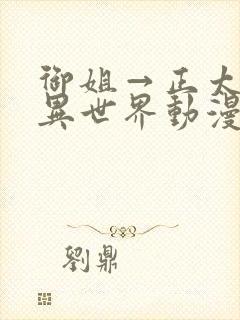 御姐→正太
異世界動漫
劉鼎